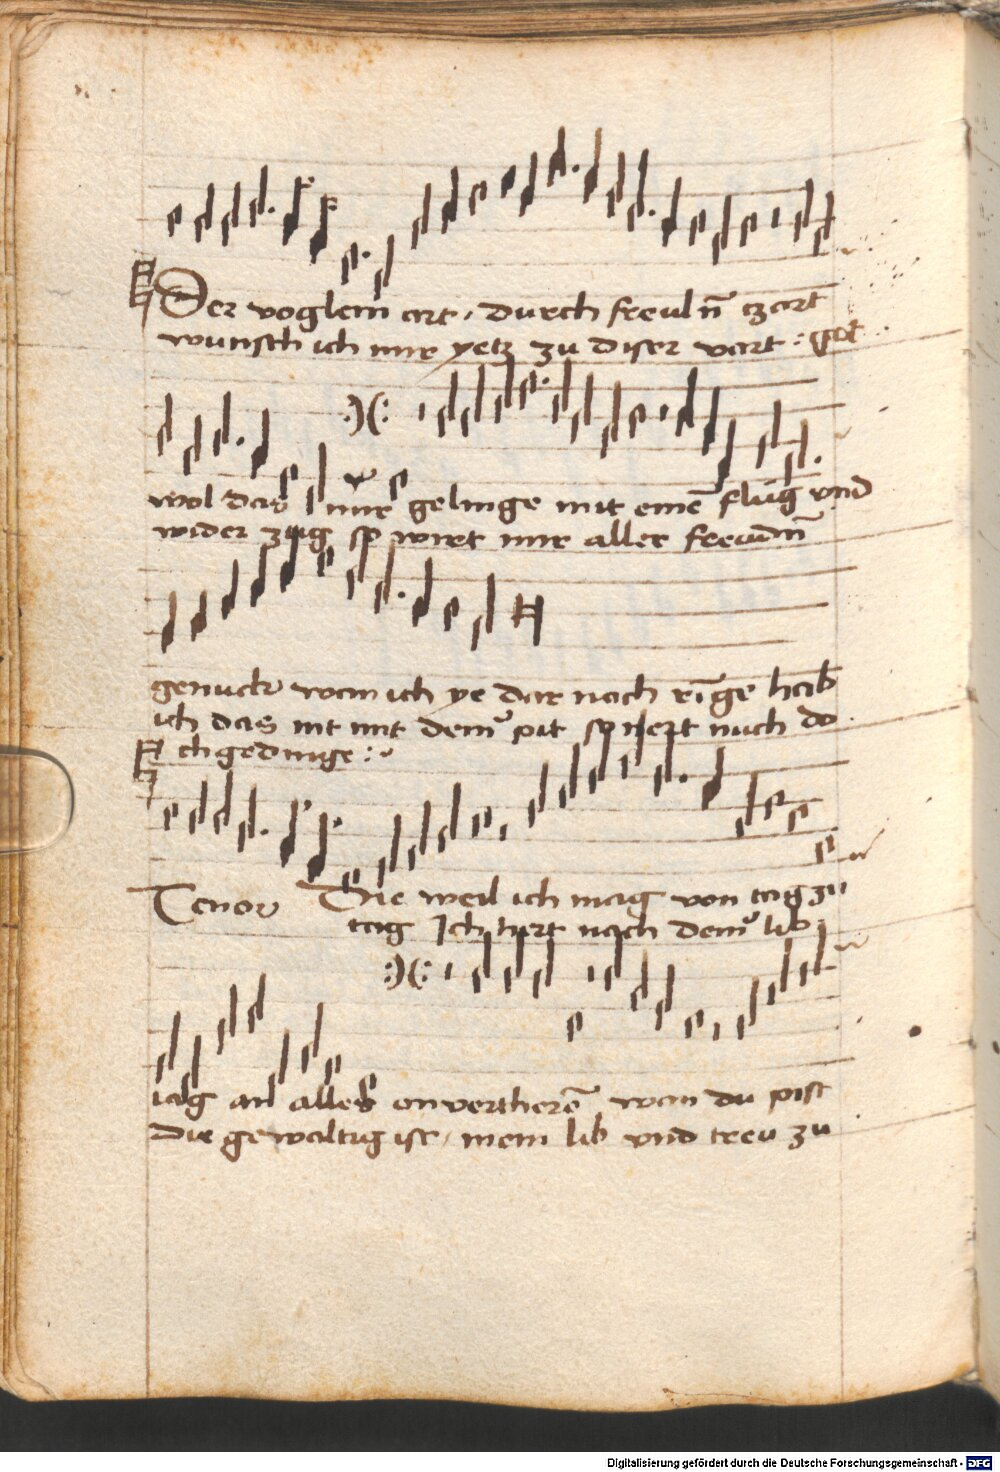 Der voglein art, durch freuln̄ czart
wunsch ich mir yetz zu diser vart : got
wol das mir gelinge mit einē flug vnd
wider zug so wirt mir aller freudn̄
genuck wan ich ye dar nach ringe hab
ich das nit mit dem pit so hert mich do
ch gedinge :
Tenor Die weil ich mag von tag zu
tag Ich hert nach dem lib
iag an alles verkherē wan du pist
die gewaltig ist, mein lib vnd treu zu
Digitalisierung gefördert durch die Deutsche Forschungsgemeinschaft - DFG